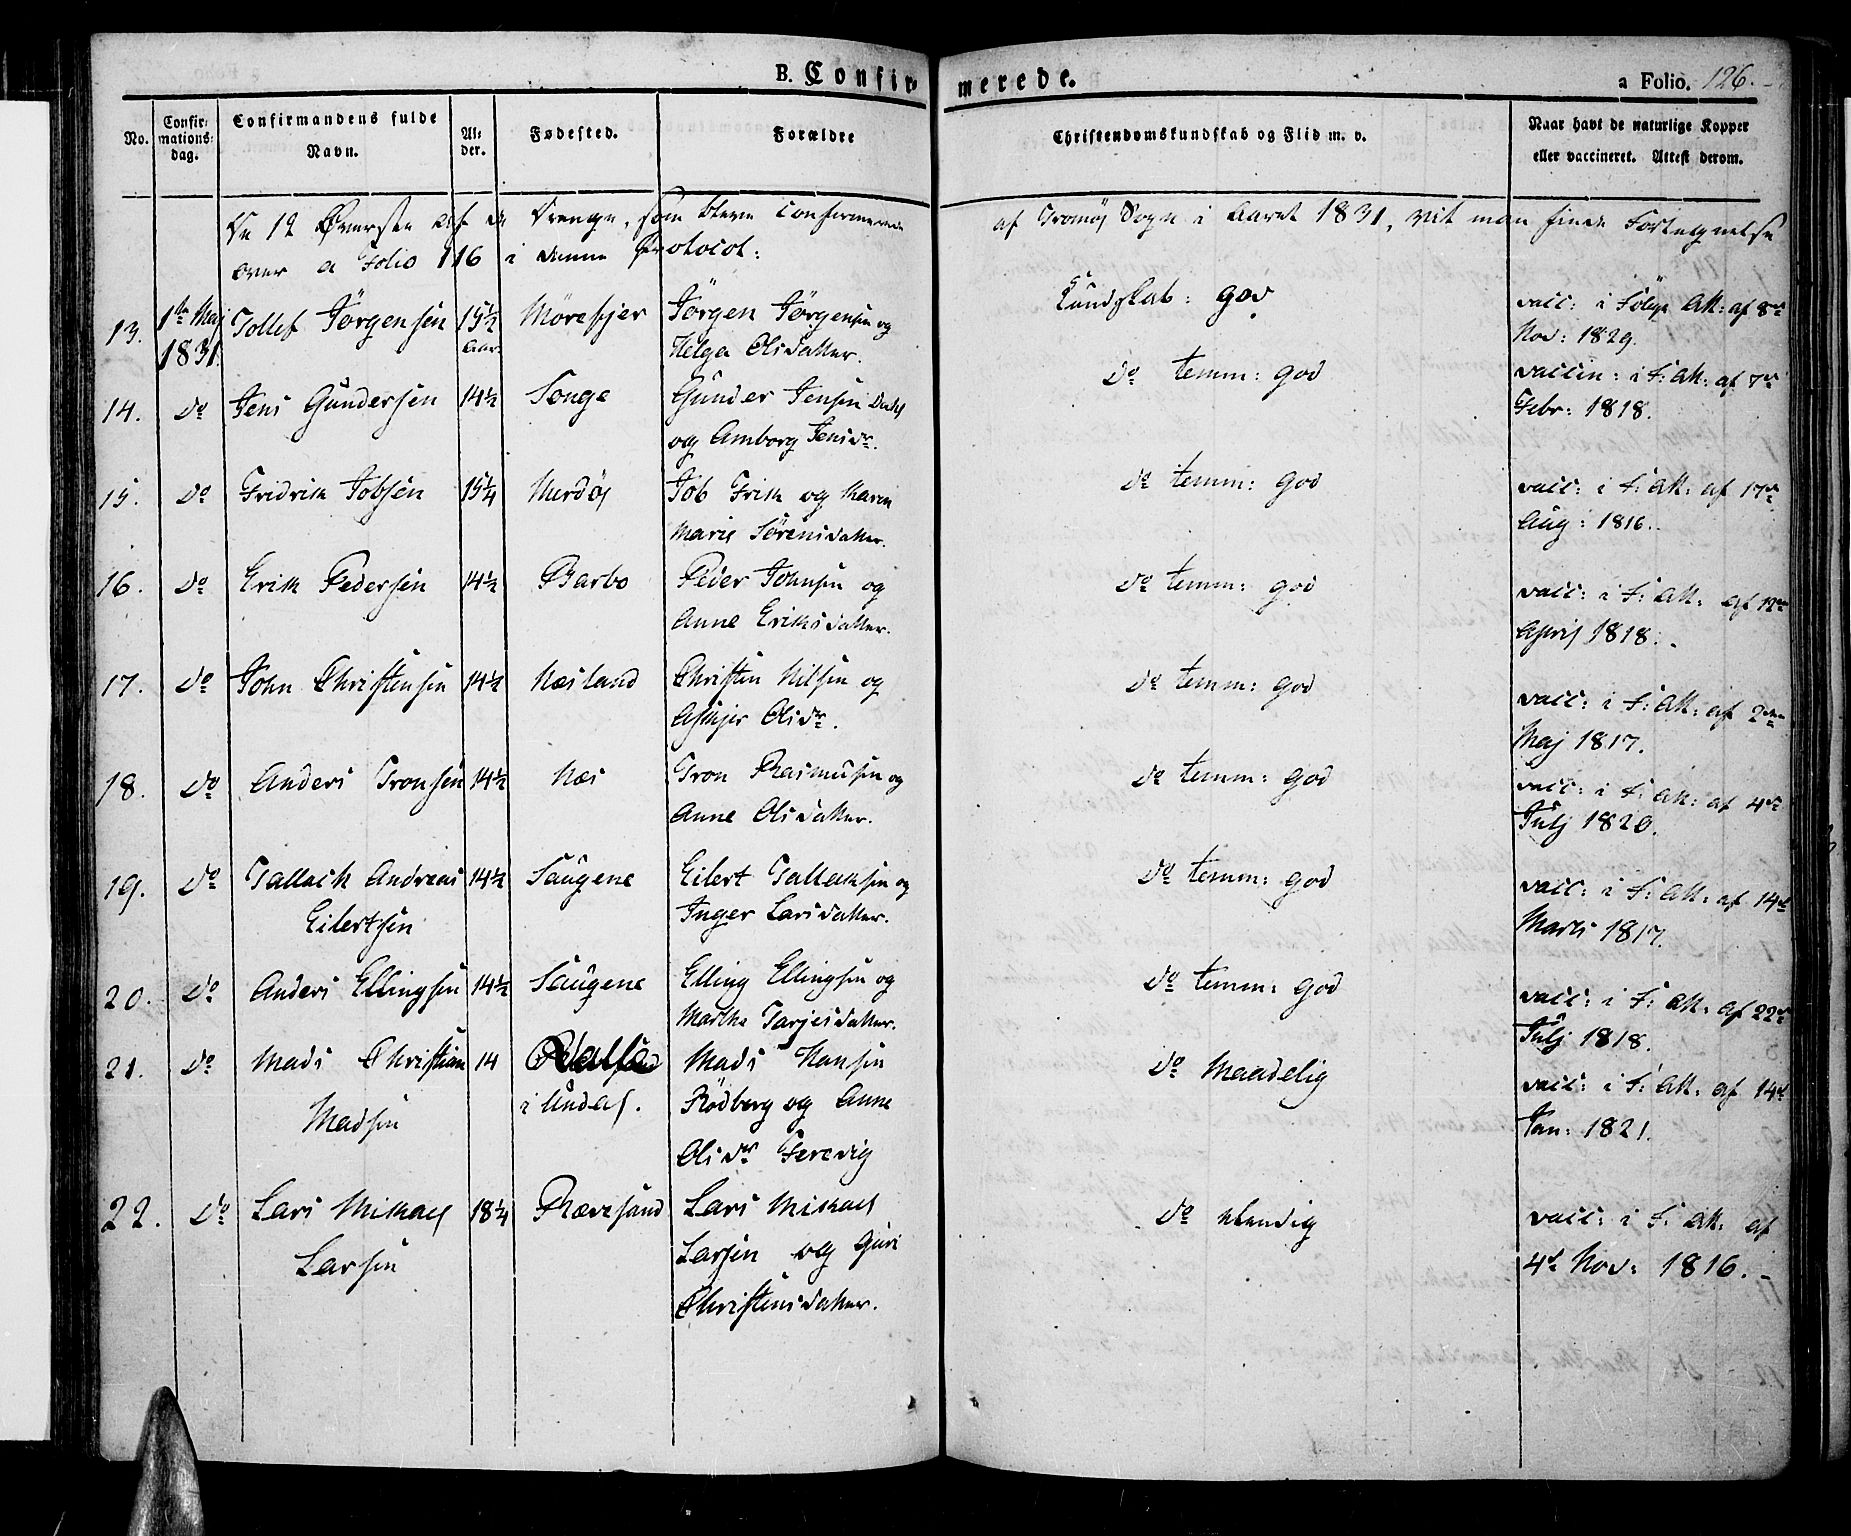 B. Confirmerede. a Folio. 126.
No. Confirmationsdag. Confirmandens fulde Navn. Alder. Fødested. Forældre Christendomskundskab og Flid m. v. Naar havt de naturlige Kopper eller vaccineret. Attest derom.
De 12 Øverste af de Drenge, som bleve Confirmerede af Tromøj Sogn i Aaret 1831, vil man finde Fortegnelse
over a Folio 116 i denne Protocol:
13. 1ste Maj 1831. Tollef Jörgensen 15½ Aar. Mörefjer Jörgen Jörgensen og Kundskab: god vacc: i Fölge Att: af 8de
Helge Olsdatter. Nov: 1829.
14. do Jens Gundersen 14½ Songe Gunder Jensen do temm: god vaccin: i F: Att: af 7de
og Amborg Jensdr. Febr: 1818.
15. do Fridrik Jobsen 15¼ Merdöj Job Frik og Maren do temm: god vacc: i F: Att: af 17de
Marie Sörensdatter. Aug: 1816.
16. do Erik Pedersen 14½ Barbo Peder Johnsen og do temm: god vacc: i F: Att: af 12te
Anne Eriksdatter. April 1818.
17. do John Christensen 14½ Næsland Christen Nilsen og do temm: god vacc: i F: Att: af 2den
Askjer Olsdr. Maj 1817.
18. do Anders Tronsen 14½ Næs Tron Rasmusen og do temm: god vacc: i F: Att: af 4de
Anne Olsdatter. Julj 1820.
19. do Tallack Andreas 14½ Saugene Eilert Tallaksen og do temm: god vacc: i F: Att: af 14de
Eilertsen Inger Larsdatter. Marts 1817.
20. do Anders Ellingsen 14½ Saugene Elling Ellingsen og do temm: god vacc: i F: Att: af 22de
Marthe Tarjesdatter. Julj 1818.
21. do Mads Christian 14 Mads Hansen do Maadelig vacc: i F: Att: af 14de
Madsen i Rödberg og Anne Jan: 1821.
Olsdr Ferevig
22. do Lars Mikael 18¼ Rævesand Lars Mikael do Elendig vacc: i F: Att: af
Larsen Larsen og Guri 4de Nov: 1816.
Christensdatter.